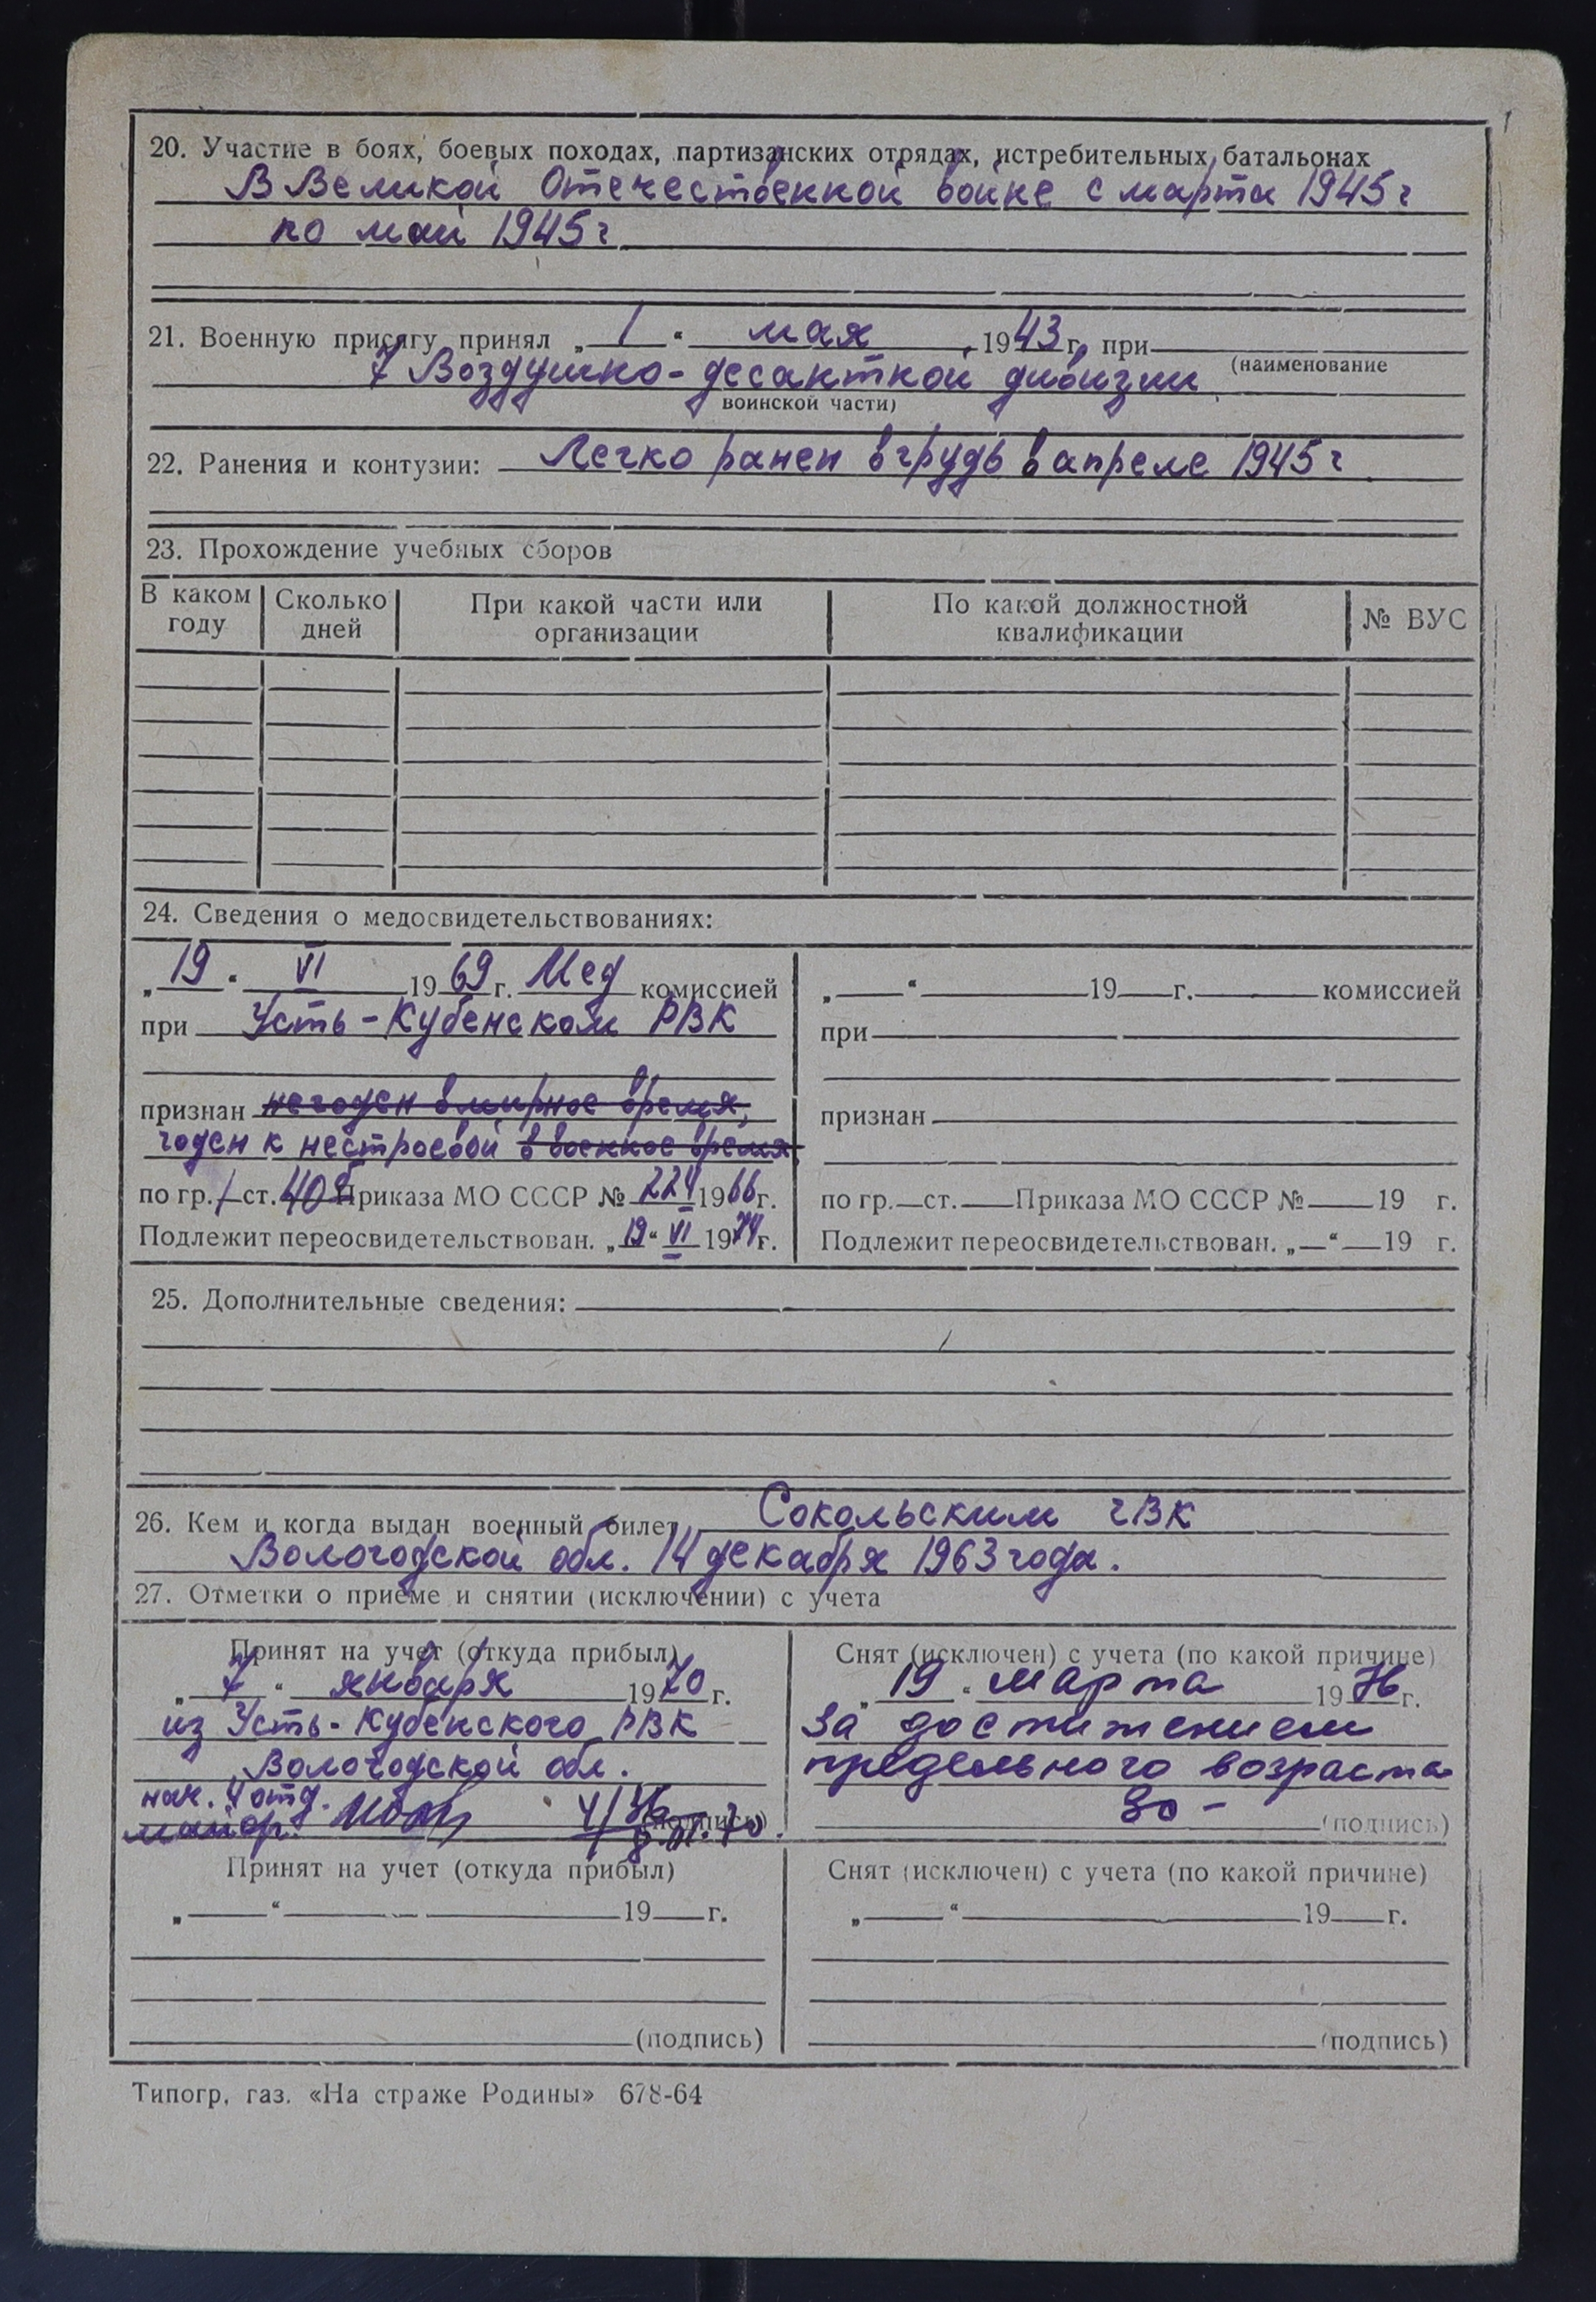 20. Участие в боях, боевых походах, партизанских отрядах, истребительных батальонах
В Великой Отечественной войне с марта 1945 г
по май 1945 г.
21. Военную присягу принял „ 1 “ мая 1943 г. при
(наименование
7 Воздушно-десантной дивизии
воинской части)
22. Ранения и контузии: Легко ранен в грудь в апреле 1945 г.
23. Прохождение учебных сборов
В каком году Сколько дней При какой части или организации По какой должностной квалификации № ВУС
24. Сведения о медосвидетельствованиях:
„ 19 “ VI 1969 г. Мед комиссией
при Усть-Кубенском РВК
признан негоден в мирное время,
годен к нестроевой в военное время
по гр. I ст. 40б Приказа МО СССР № 224 1966 г.
Подлежит переосвидетельствован. „ 19 “ VI 1974 г.
„ “ 19 г. комиссией
при
признан
по гр. ст. Приказа МО СССР № 19 г.
Подлежит переосвидетельствован. „ “ 19 г.
25. Дополнительные сведения:
26. Кем и когда выдан военный билет Сокольским гВК
Вологодской обл. 14 декабря 1963 года.
27. Отметки о приеме и снятии (исключении) с учета
Принят на учет (откуда прибыл)
„ 7 “ января 1970 г.
из Усть-Кубенского РВК
Вологодской обл.
нач. 4 отд.
майор
(подпись)
8.01.70.
Снят (исключен) с учета (по какой причине)
„ 19 “ марта 1976 г.
За достижением
предельного возраста
50 -
(подпись)
Принят на учет (откуда прибыл)
„ “ 19 г.
(подпись)
Снят (исключен) с учета (по какой причине)
„ “ 19 г.
(подпись)
Типогр. газ. «На страже Родины» 678-64